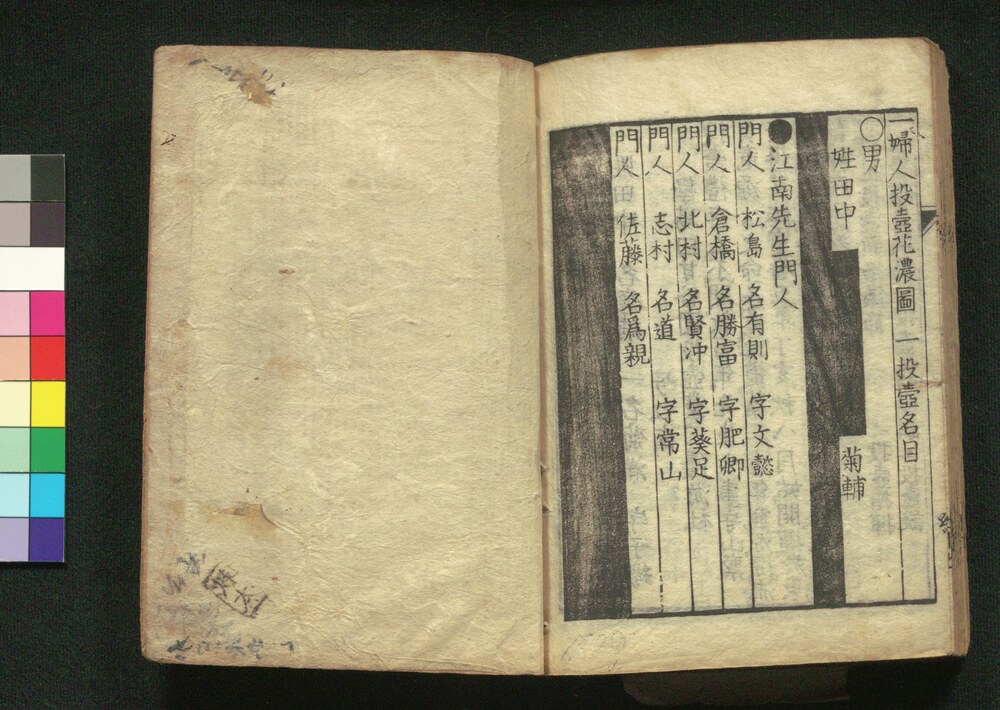 一婦人投壺花濃圖　一投壺名目
○男
姓田中　菊輔
●江南先生門人
門人　松島　名有則　字文懿
門人　倉橋　名勝富　字肥卿
門人　北村　名賢冲　字葵足
門人　志村　名道　字常山
門人　佐藤　名爲親